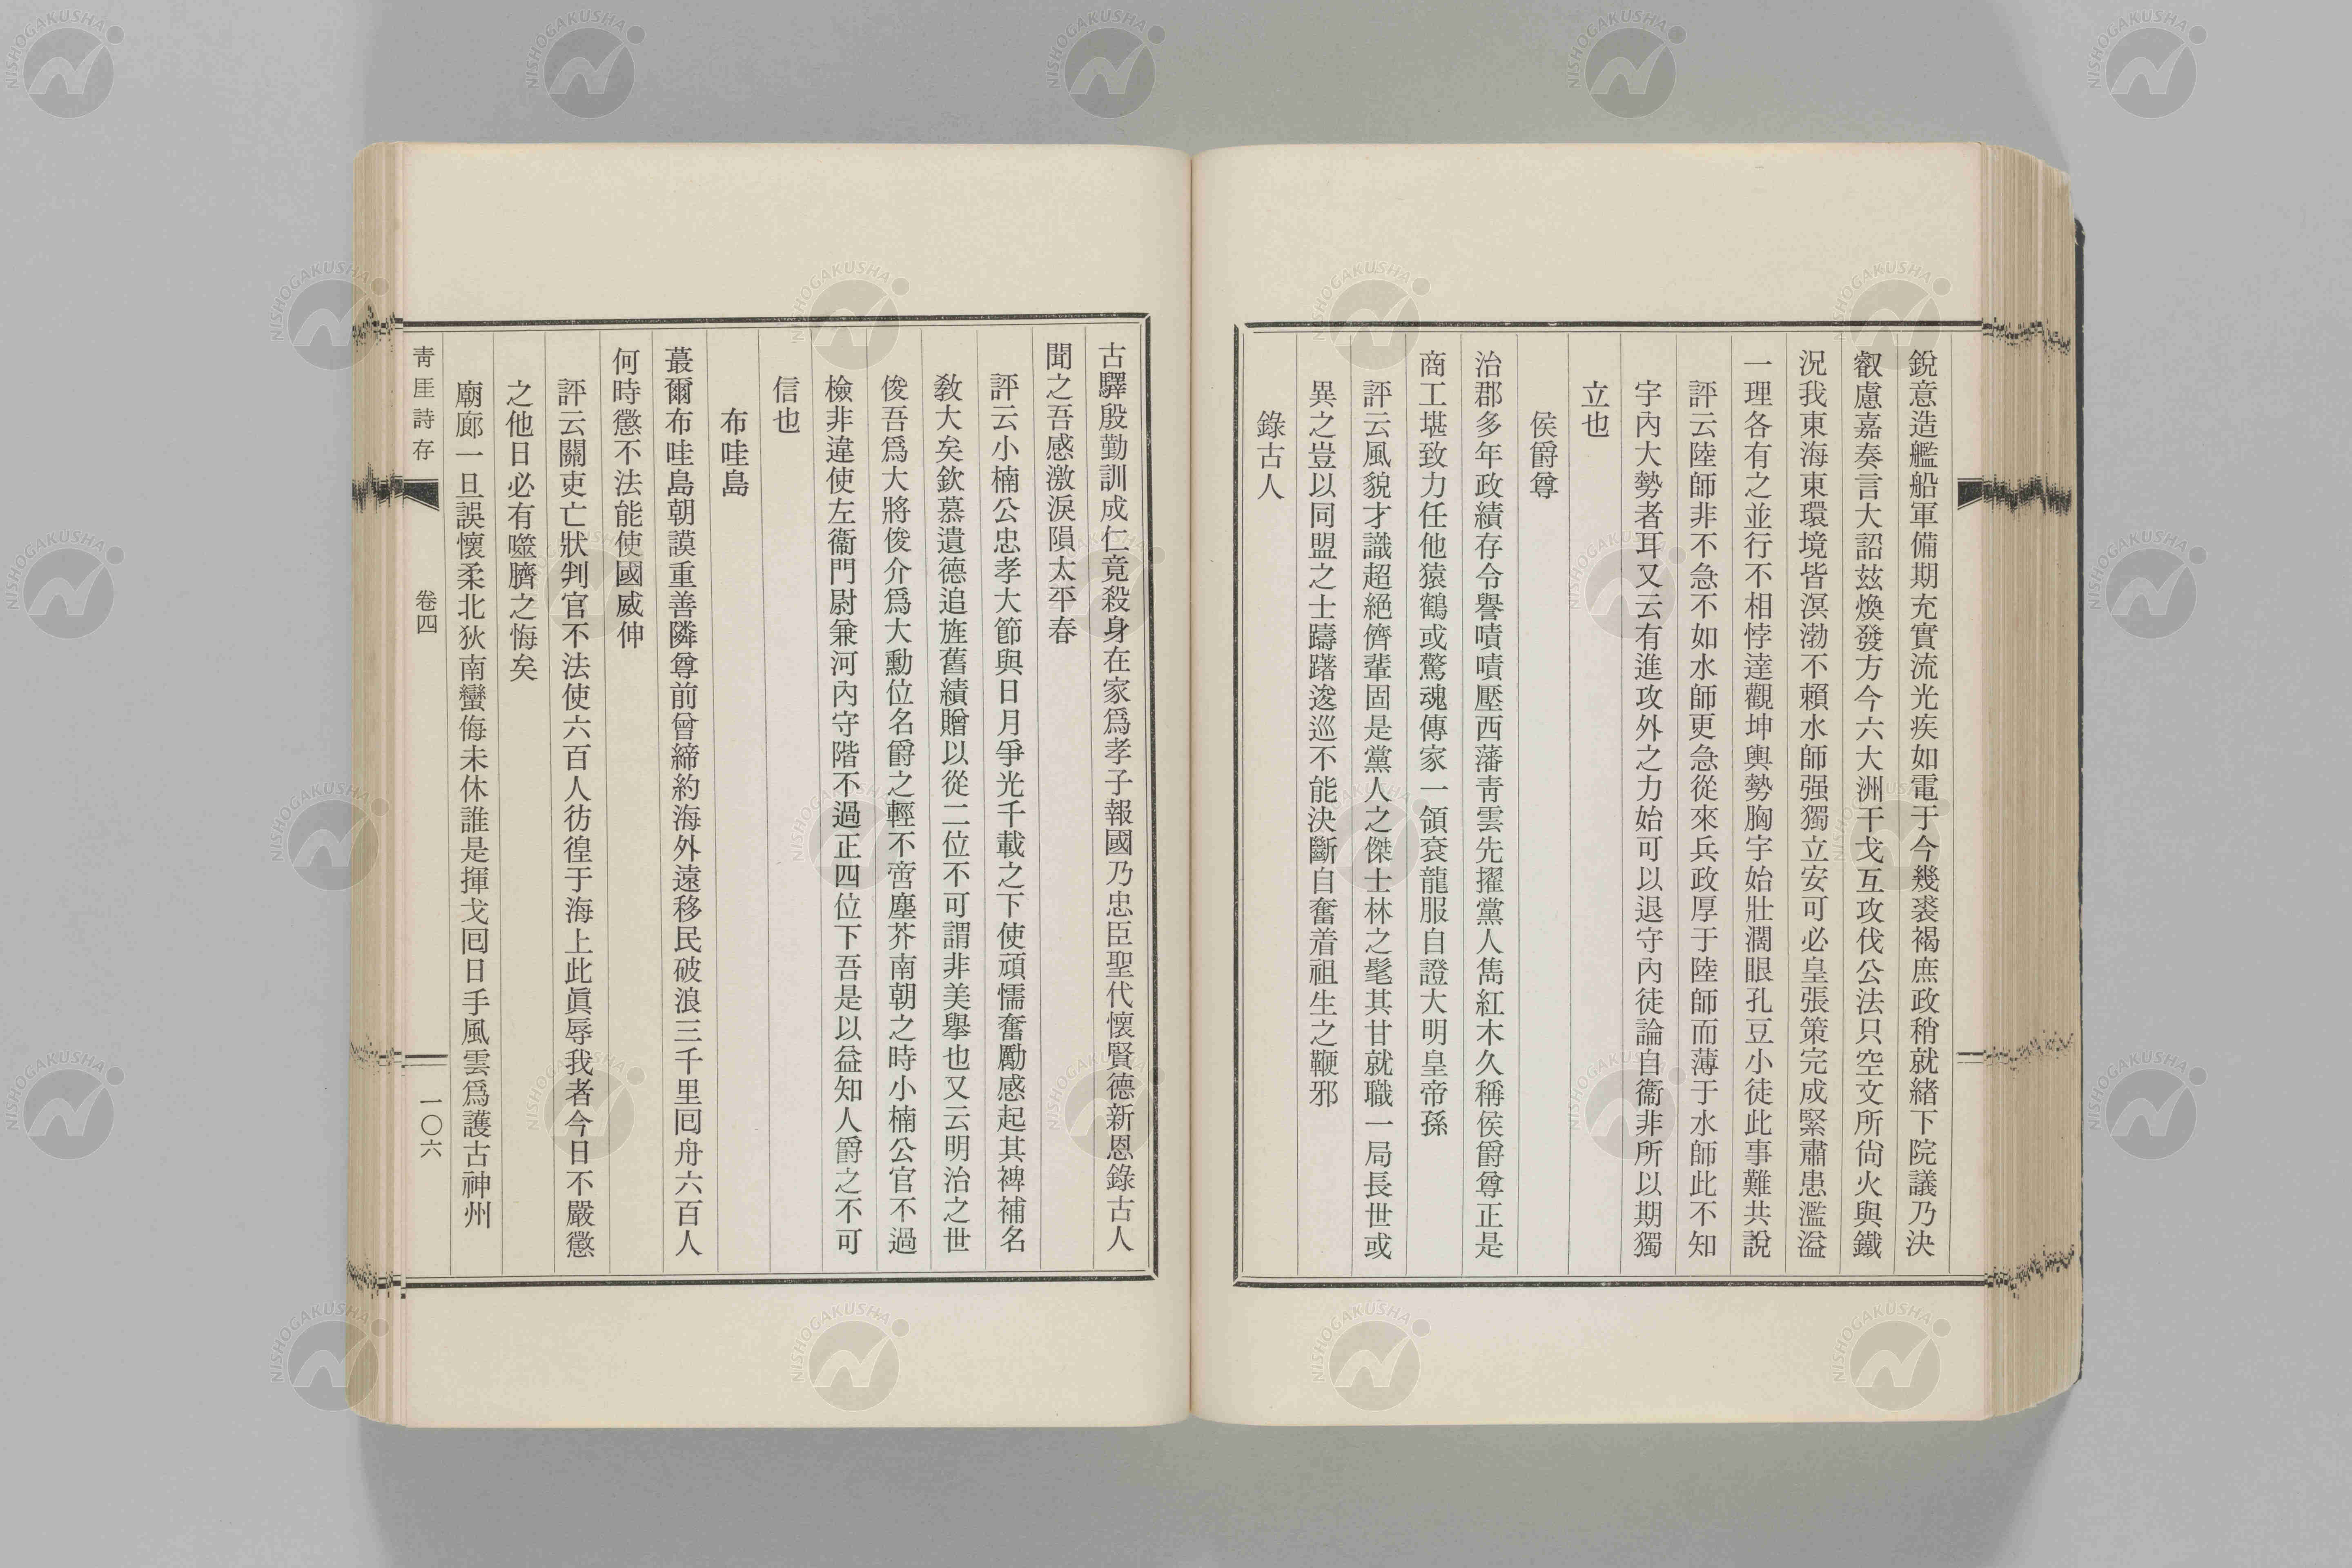 銳意造艦船軍備期充實流光疾如電于今幾裘褐庶政稍就緒下院議乃決
叡慮嘉奏言大詔玆煥發方今六大洲干戈互攻伐公法只空文所尙火與鐵
況我東海東環境皆溟渤不賴水師强獨立安可必皇張策完成緊肅患濫溢
一理各有之並行不相悖達觀坤輿勢胸宇始壯濶眼孔豆小徒此事難共說
評云陸師非不急不如水師更急從來兵政厚于陸師而薄于水師此不知
宇內大勢者耳又云有進攻外之力始可以退守內徒論自衞非所以期獨
立也
侯爵尊
治郡多年政績存令譽嘖嘖壓西藩靑雲先擢黨人雋紅木久稱侯爵尊正是
商工堪致力任他猿鶴或驚魂傳家一領袞龍服自證大明皇帝孫
評云風貌才識超絕儕輩固是黨人之傑士林之髦其甘就職一局長世或
異之豈以同盟之士躊躇逡巡不能決斷自奮着祖生之鞭邪
錄古人
古驛殷勤訓成仁竟殺身在家爲孝子報國乃忠臣聖代懷賢德新恩錄古人
聞之吾感激淚隕太平春
評云小楠公忠孝大節與日月爭光千載之下使頑懦奮勵感起其裨補名
敎大矣欽慕遺德追旌舊績贈以從二位不可謂非美擧也又云明治之世
俊吾爲大將俊介爲大勳位名爵之輕不啻塵芥南朝之時小楠公官不過
檢非違使左衞門尉兼河內守階不過正四位下吾是以益知人爵之不可
信也
布哇島
蕞爾布哇島朝謨重善隣尊前曾締約海外遠移民破浪三千里囘舟六百人
何時懲不法能使國威伸
評云關吏亡狀判官不法使六百人彷徨于海上此眞辱我者今日不嚴懲
之他日必有噬臍之悔矣
廟廊一旦誤懷柔北狄南蠻侮未休誰是揮戈囘日手風雲爲護古神州
靑厓詩存
卷四
一〇六
NISHOGAKUSHA